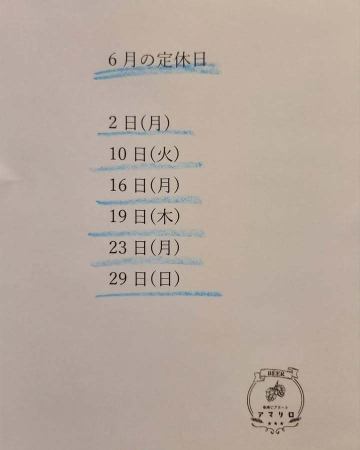 6月の定休日
2日(月)
10日(火)
16日(月)
19日(木)
23日(月)
29日(日)
BEER
アマリロ